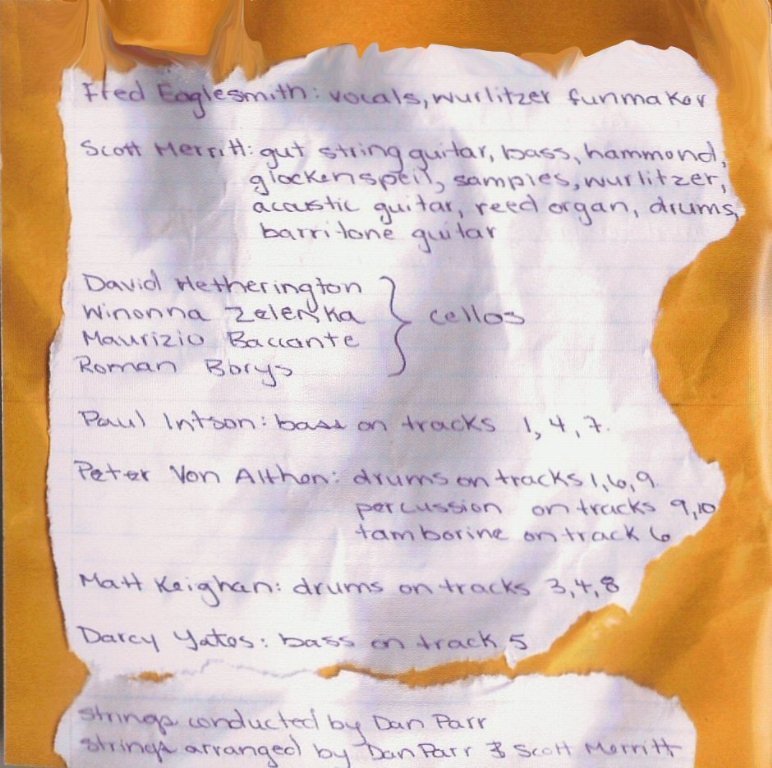 Fred Eaglesmith: vocals, wurlitzer funmaker
Scott Merritt: gut string guitar, bass, hammond,
glockenspeil, samples, wurlitzer,
acoustic guitar, reed organ, drums,
barritone guitar
David Hetherington
Winonna Zelenka } cellos
Maurizio Baccante
Roman Borys
Paul Intson: bass on tracks 1, 4, 7.
Peter Von Althen: drums on tracks 1, 6, 9
percussion on tracks 9,10
tamborine on track 6
Matt Keighan: drums on tracks 3,4,8
Darcy Yates: bass on track 5
strings conducted by Dan Parr
strings arranged by Dan Parr & Scott Merritt